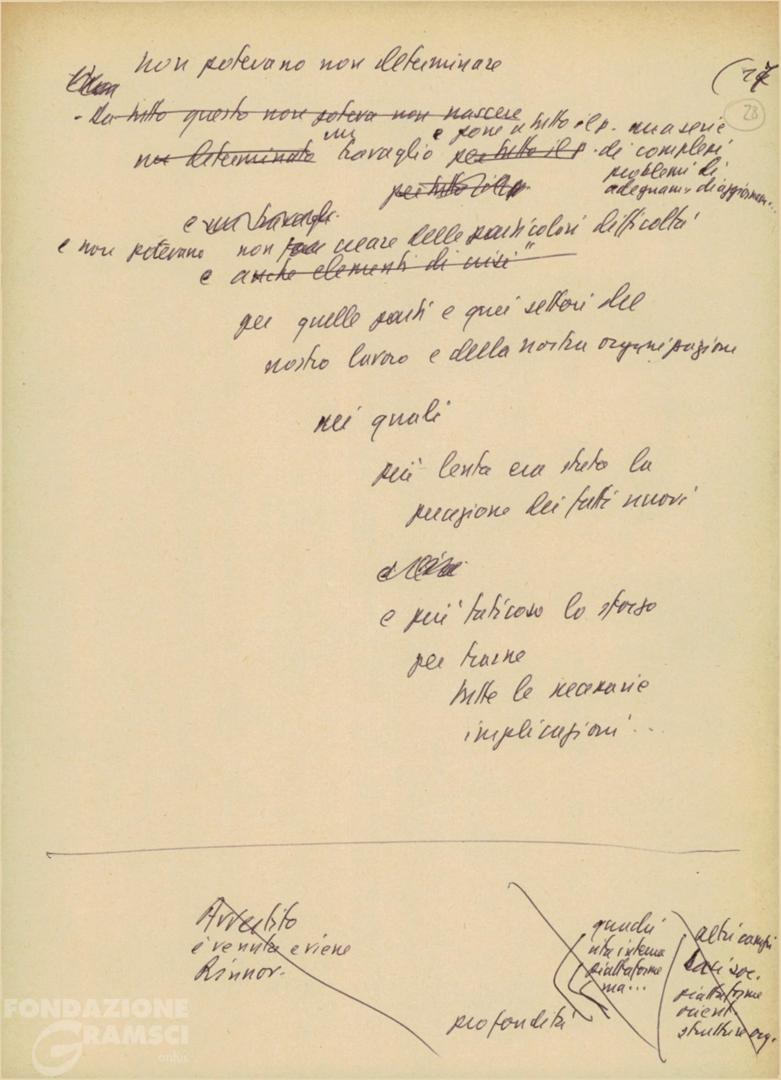 non potevano non determinare
(27
28
- Da tutto questo non poteva non nascere
e pone a tutto il p. una serie
un
ne determinato travaglio per tutto il p. di complessi
problemi di
per tutto il p. adeguam. di aggiornam...
e un travaglio
e non potevano non creare delle particolari difficoltà
e anche elementi di crisi"
per quelle parti e quei settori del
nostro lavoro e della nostra organizzazione
nei quali
più lenta era stata la
dei fatti nuovi
e più faticoso lo sforzo
per trarne
tutte le necessarie
implicazioni...
Avvertito
è venuta e viene
Rinnov.
profondità
quadri
vita interna
piattaforme
ma...
altri campi
basi soc.
piattaforme
orient.
strutture org.
FONDAZIONE
GRAMSCI
onlus